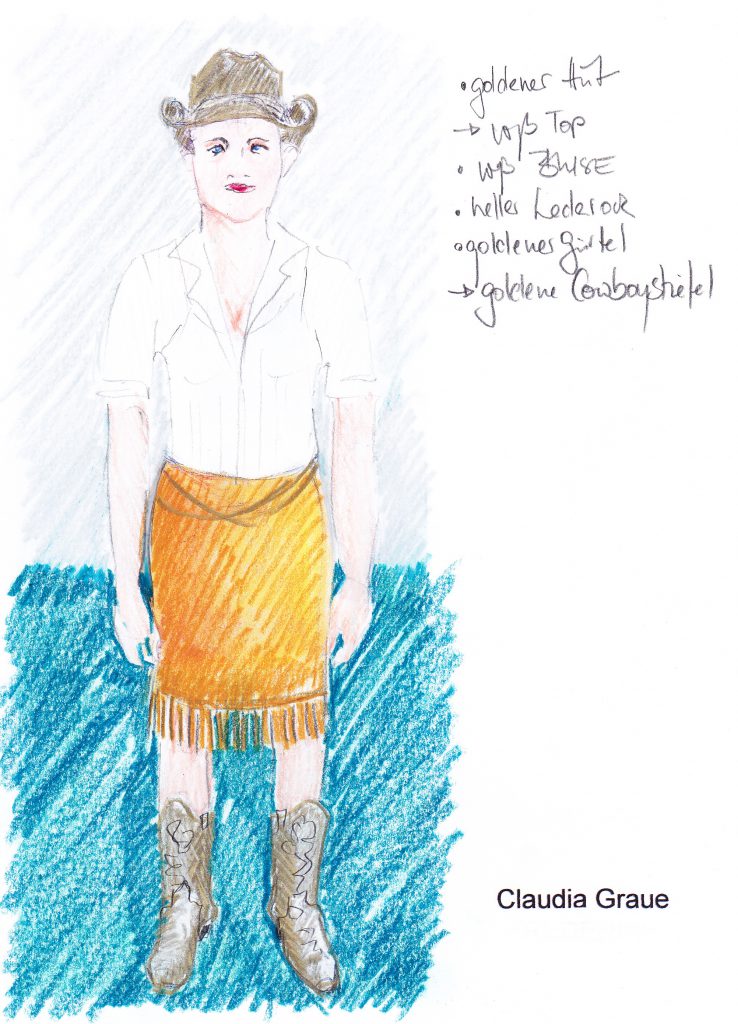 • goldener Hut
→ wß Top
• wß BLUSE
• heller Lederock
• goldener Gürtel
→ goldene Cowboystiefel
Claudia Graue